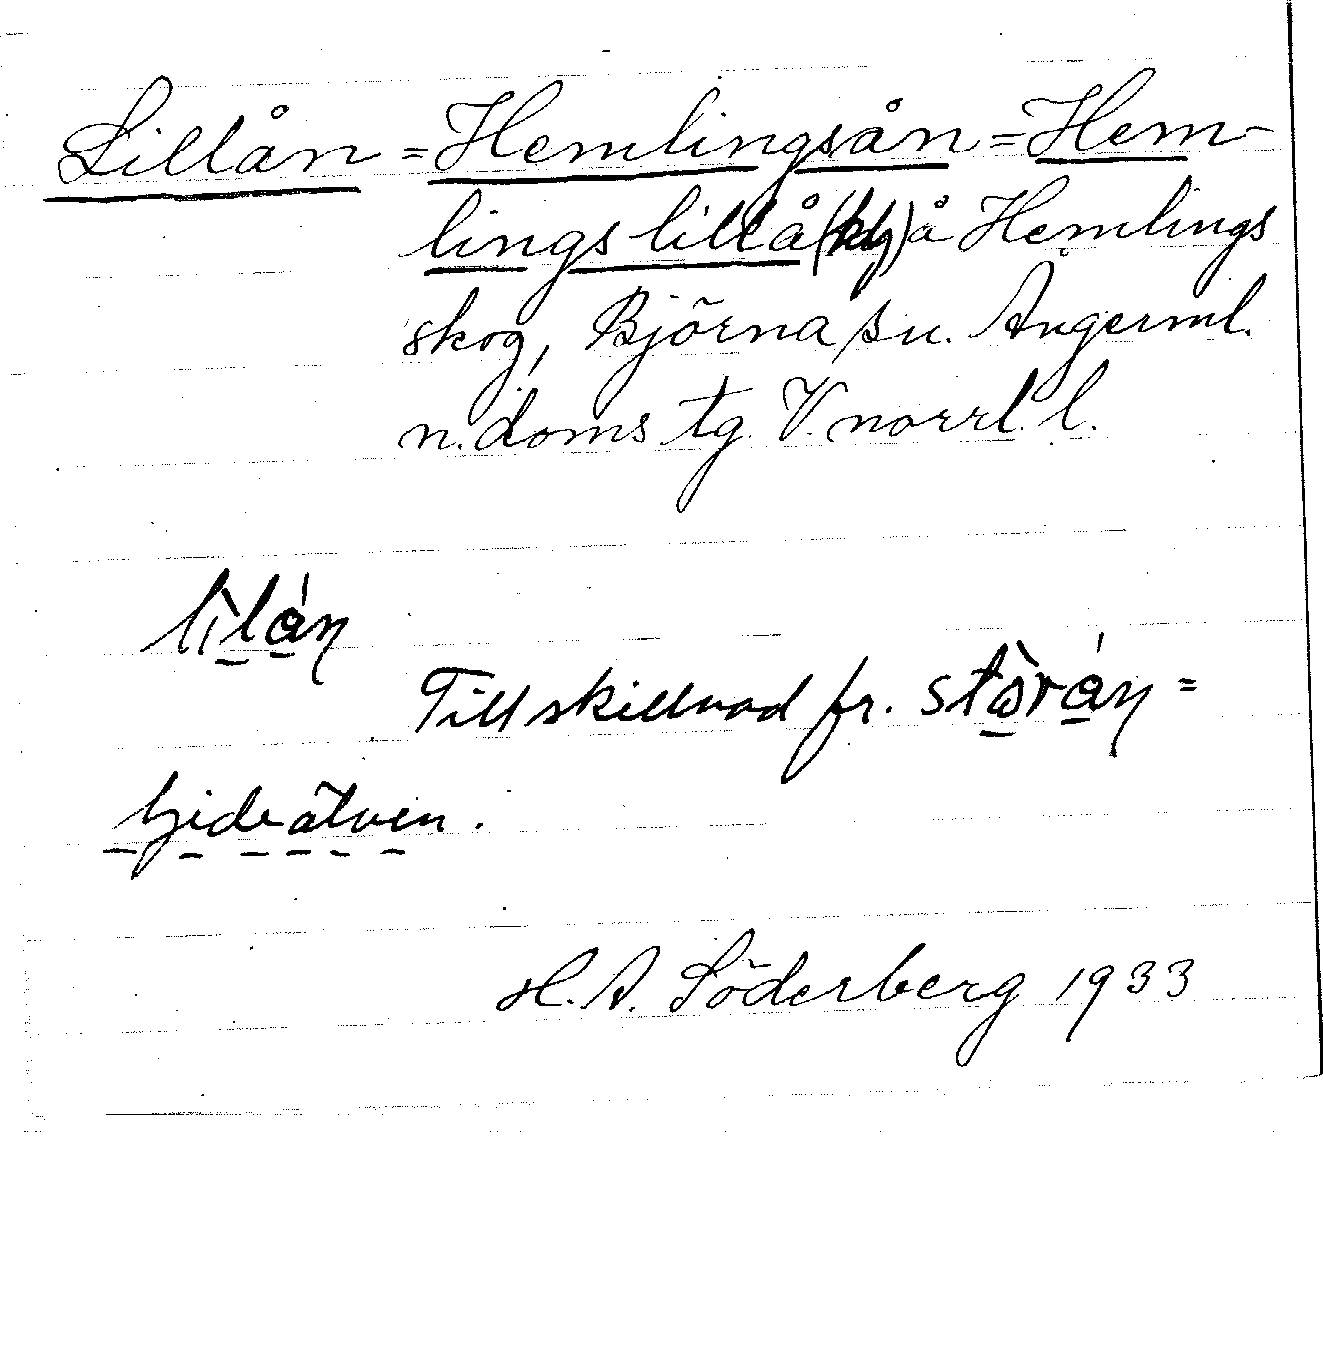 Lillån = Hemlingsån = Hem-
lings lillå (kb) å Hemlings
skog, Björna sn. Ångerml.
n. doms tg. V.norrl. l.
lìlán
Till skillnad fr. stòrán =
Gideälven.
H. A. Söderberg 1933